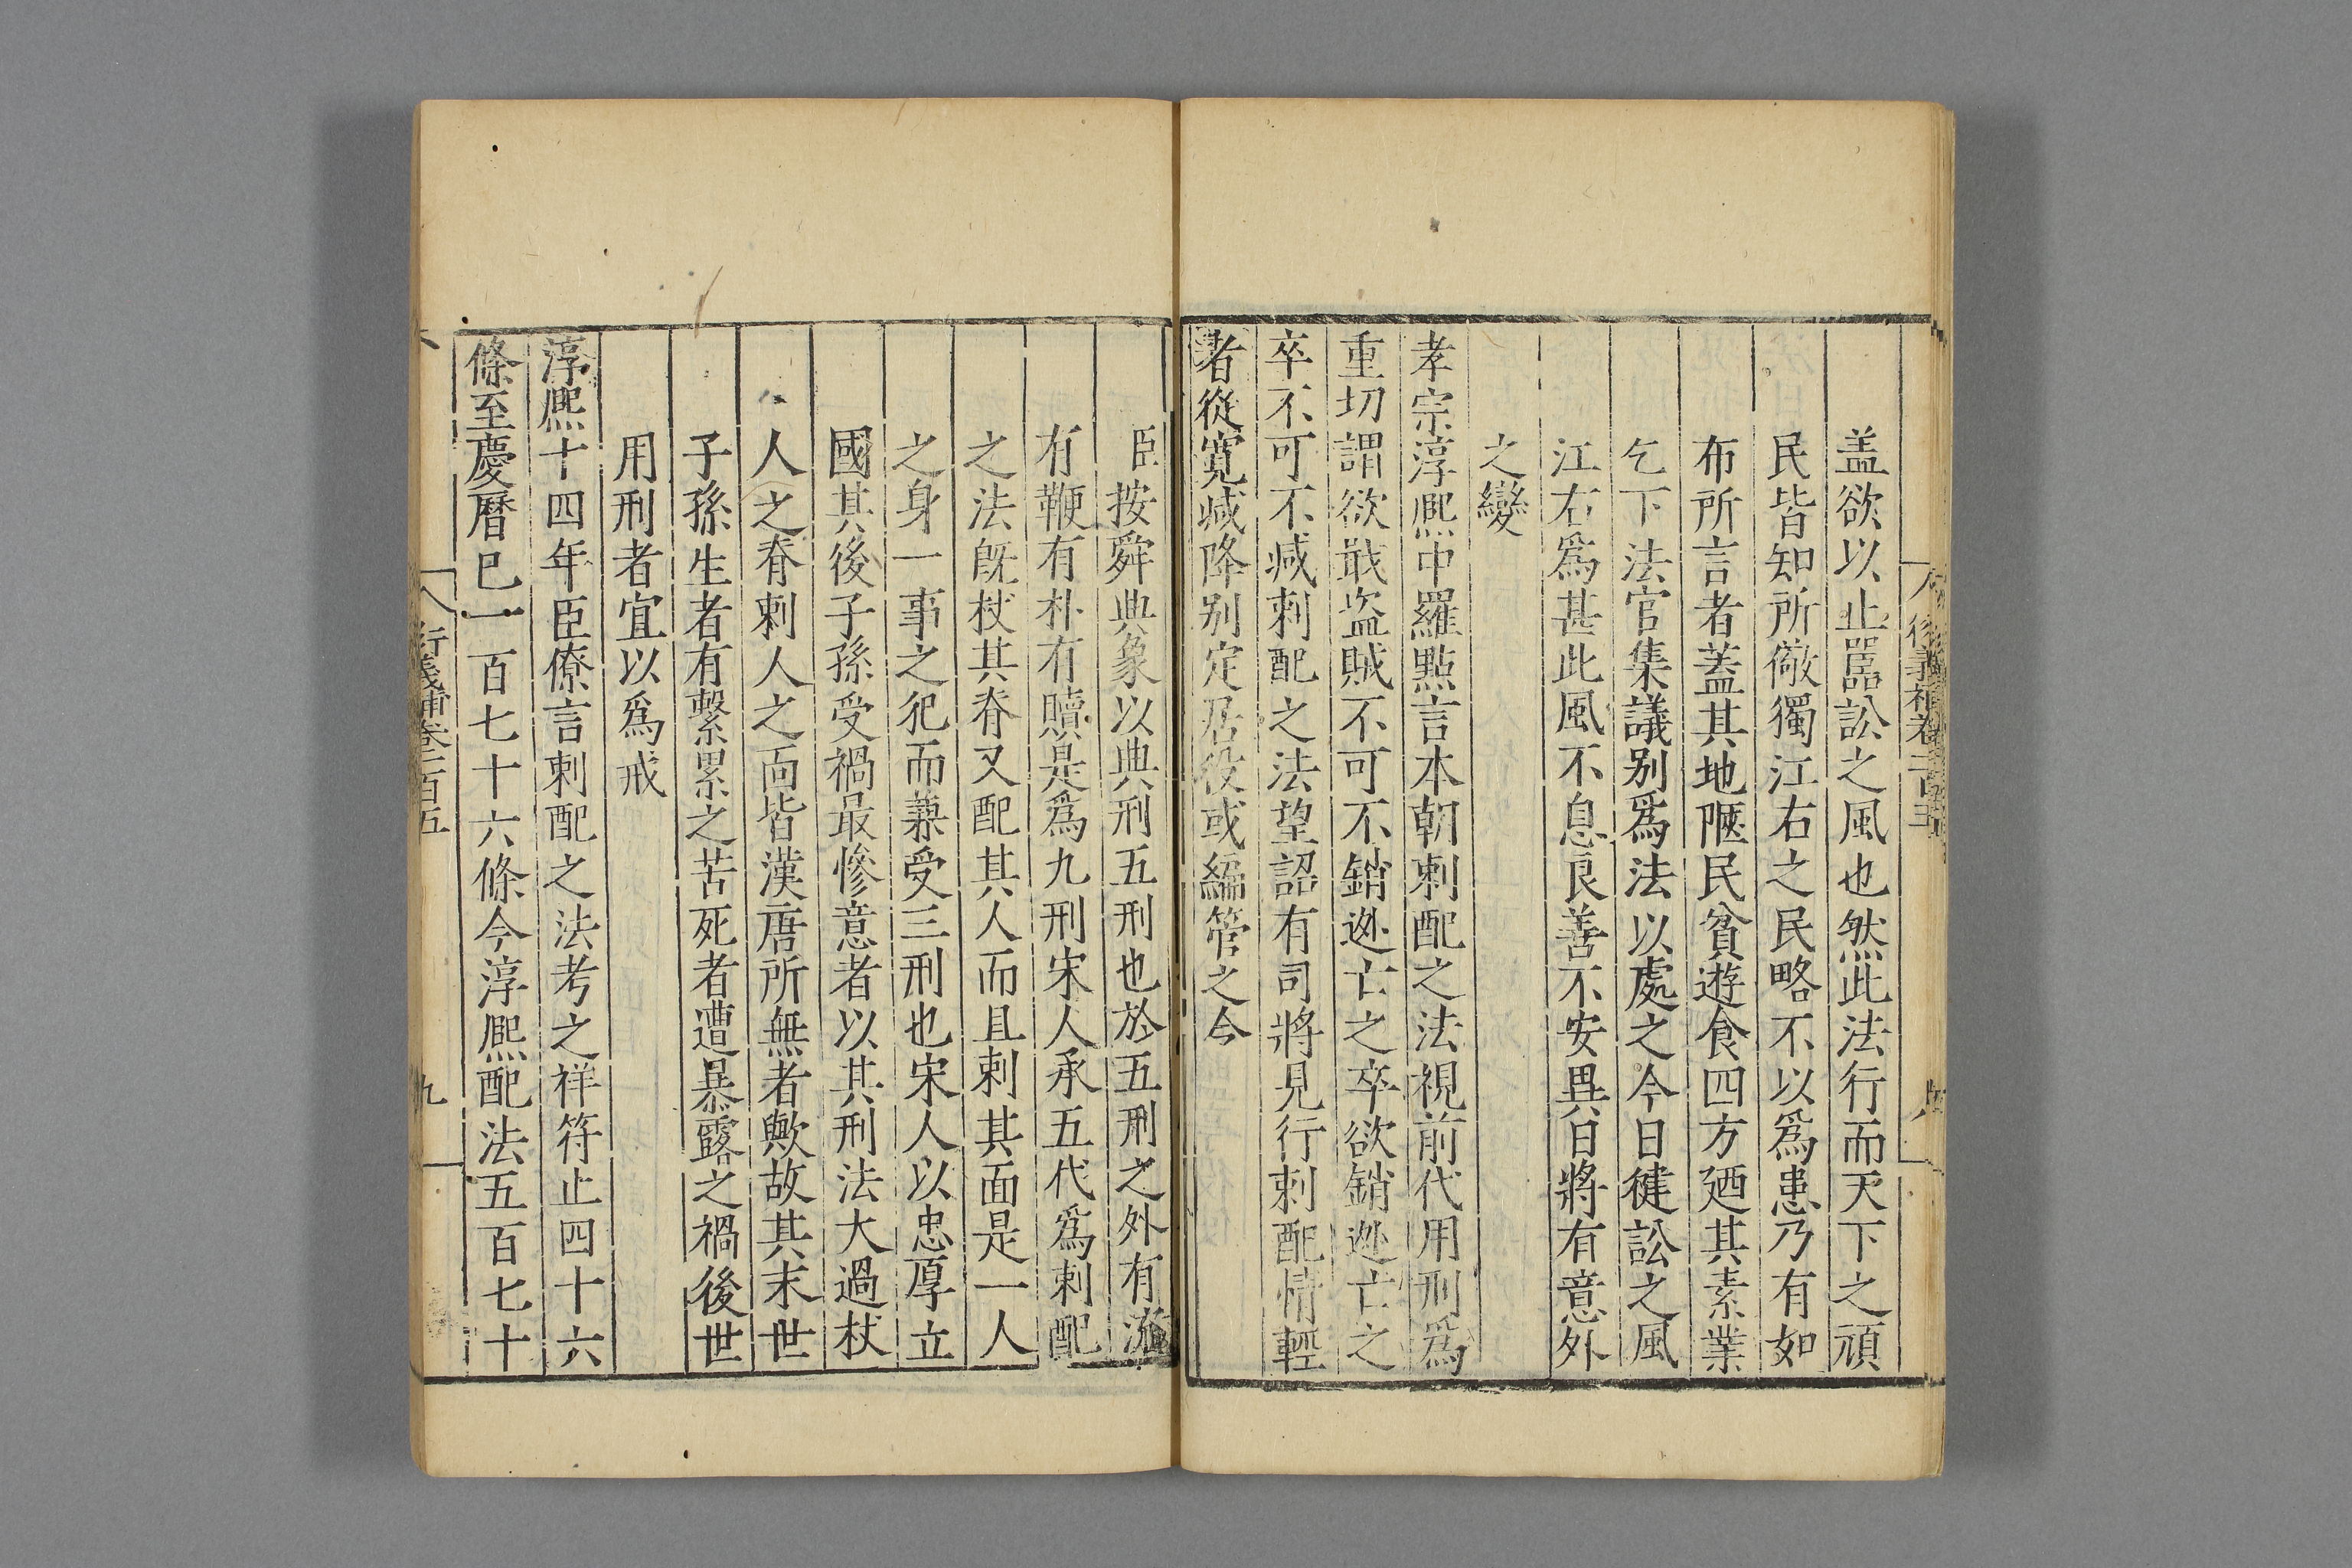 盖欲以止嚚訟之風也然此法行而天下之頑
民皆知所儆獨江右之民略不以爲患乃有如
布所言者蓋其地陿民貧遊食四方廼其素業
乞下法官集議别爲法以處之今日健訟之風
江右爲甚此風不息良善不安異日將有意外
之變
孝宗淳熈中羅點言本朝刺配之法視前代用刑爲
重切謂欲戢盗賊不可不銷逃亡之卒欲銷逃亡之
卒不可不减刺配之法望詔有司將見行刺配情輕
者從寛减降别定居役或編管之令
臣按舜典象以典刑五刑也於五刑之外有流
有鞭有朴有贖是爲九刑宋人承五代爲刺配
之法旣杖其脊又配其人而且刺其面是一人
之身一事之犯而兼受三刑也宋人以忠厚立
國其後子孫受禍最慘意者以其刑法大過杖
人之脊刺人之面皆漢唐所無者歟故其末世
子孫生者有繫累之苦死者遭暴露之禍後世
用刑者宜以爲戒
淳熈十四年臣僚言刺配之法考之祥符止四十六
條至慶曆已一百七十六條今淳熈配法五百七十
行義補卷一百五
九